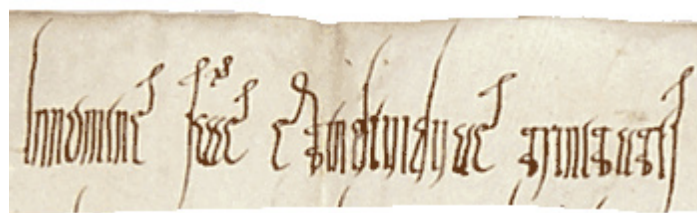 Innomine scae et indiuiduae trinitatis